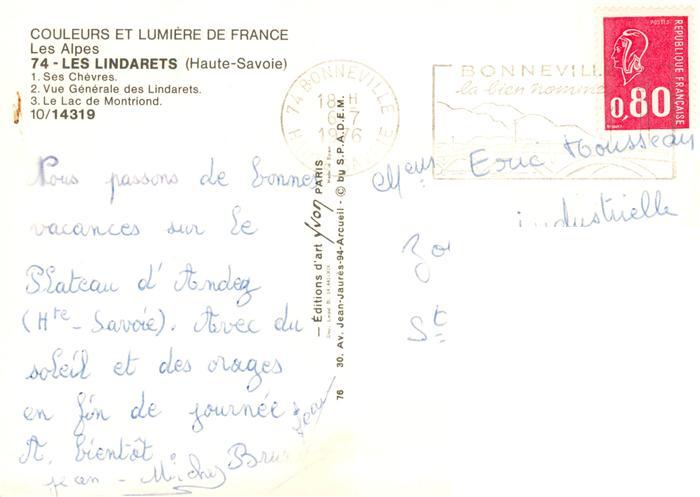 COULEURS ET LUMIÈRE DE FRANCE
Les Alpes
74 - LES LINDARETS (Haute-Savoie)
1. Ses Chèvres.
2. Vue Générale des Lindarets.
3. Le Lac de Montriond.
10/14319
Nous passons de bonnes
vacances sur le
Plateau d'Andez
(Hte-Savoie). Avec du
soleil et des orages
en fin de journée.
A bientôt
Jean-Michel Bruno
— Éditions d'art Yvon PARIS
30. Av. Jean-Jaurès-94-Arcueil - © by S.P.A.D.E.M.
76
74 BONNEVILLE
18-H
6-7
1976
BONNEVILLE
la bien nommée
POSTES
RÉPUBLIQUE FRANÇAISE
0,80
Eric Rousseau
industrielle
Zo
St